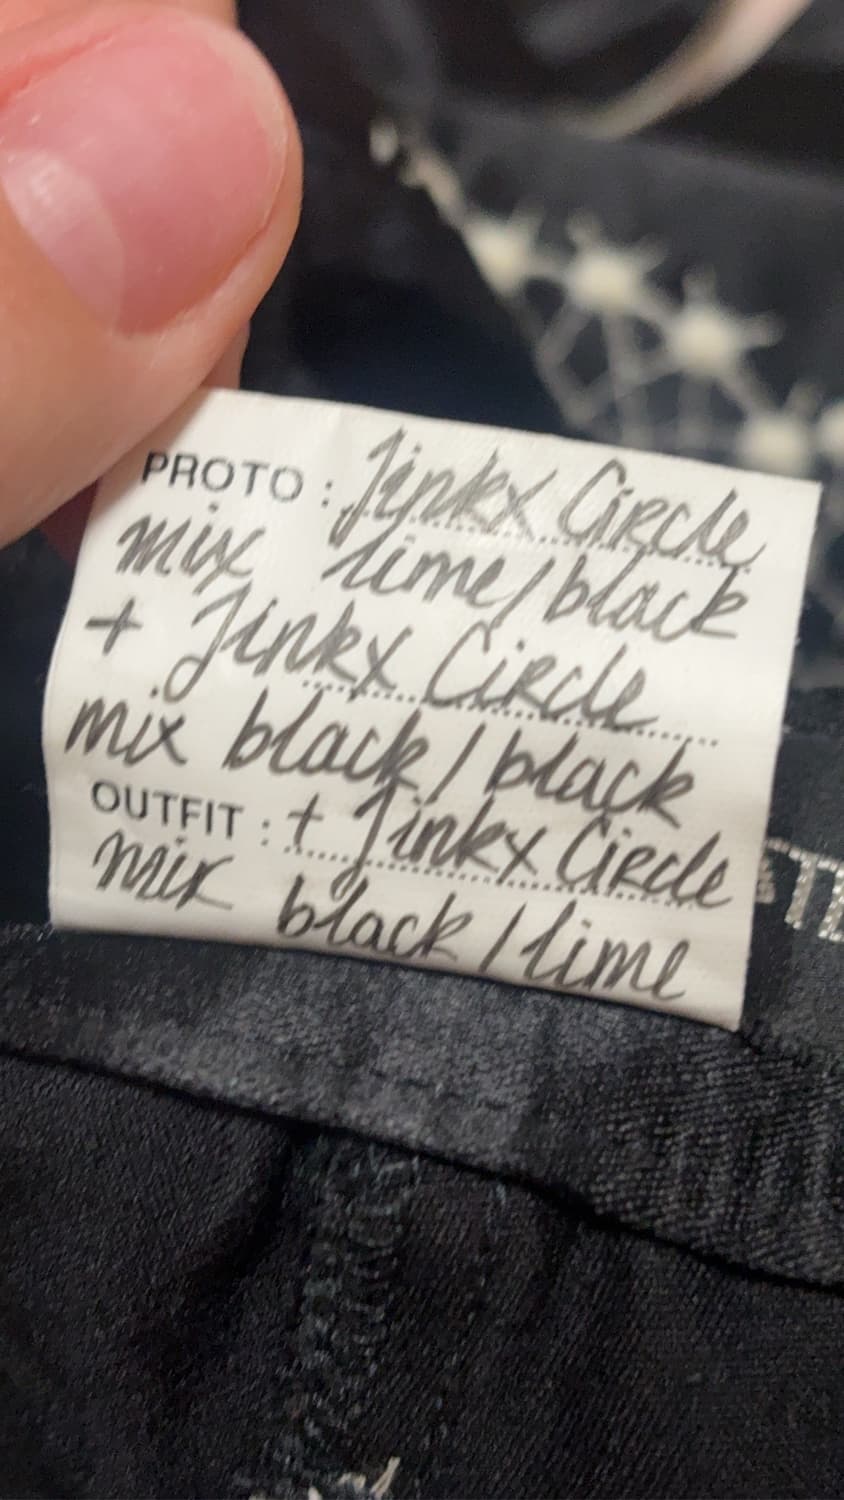 PROTO : Jinkx Circle
mix lime/black
+ Jinkx Circle
mix black/black
OUTFIT : + Jinkx Circle
mix black/lime